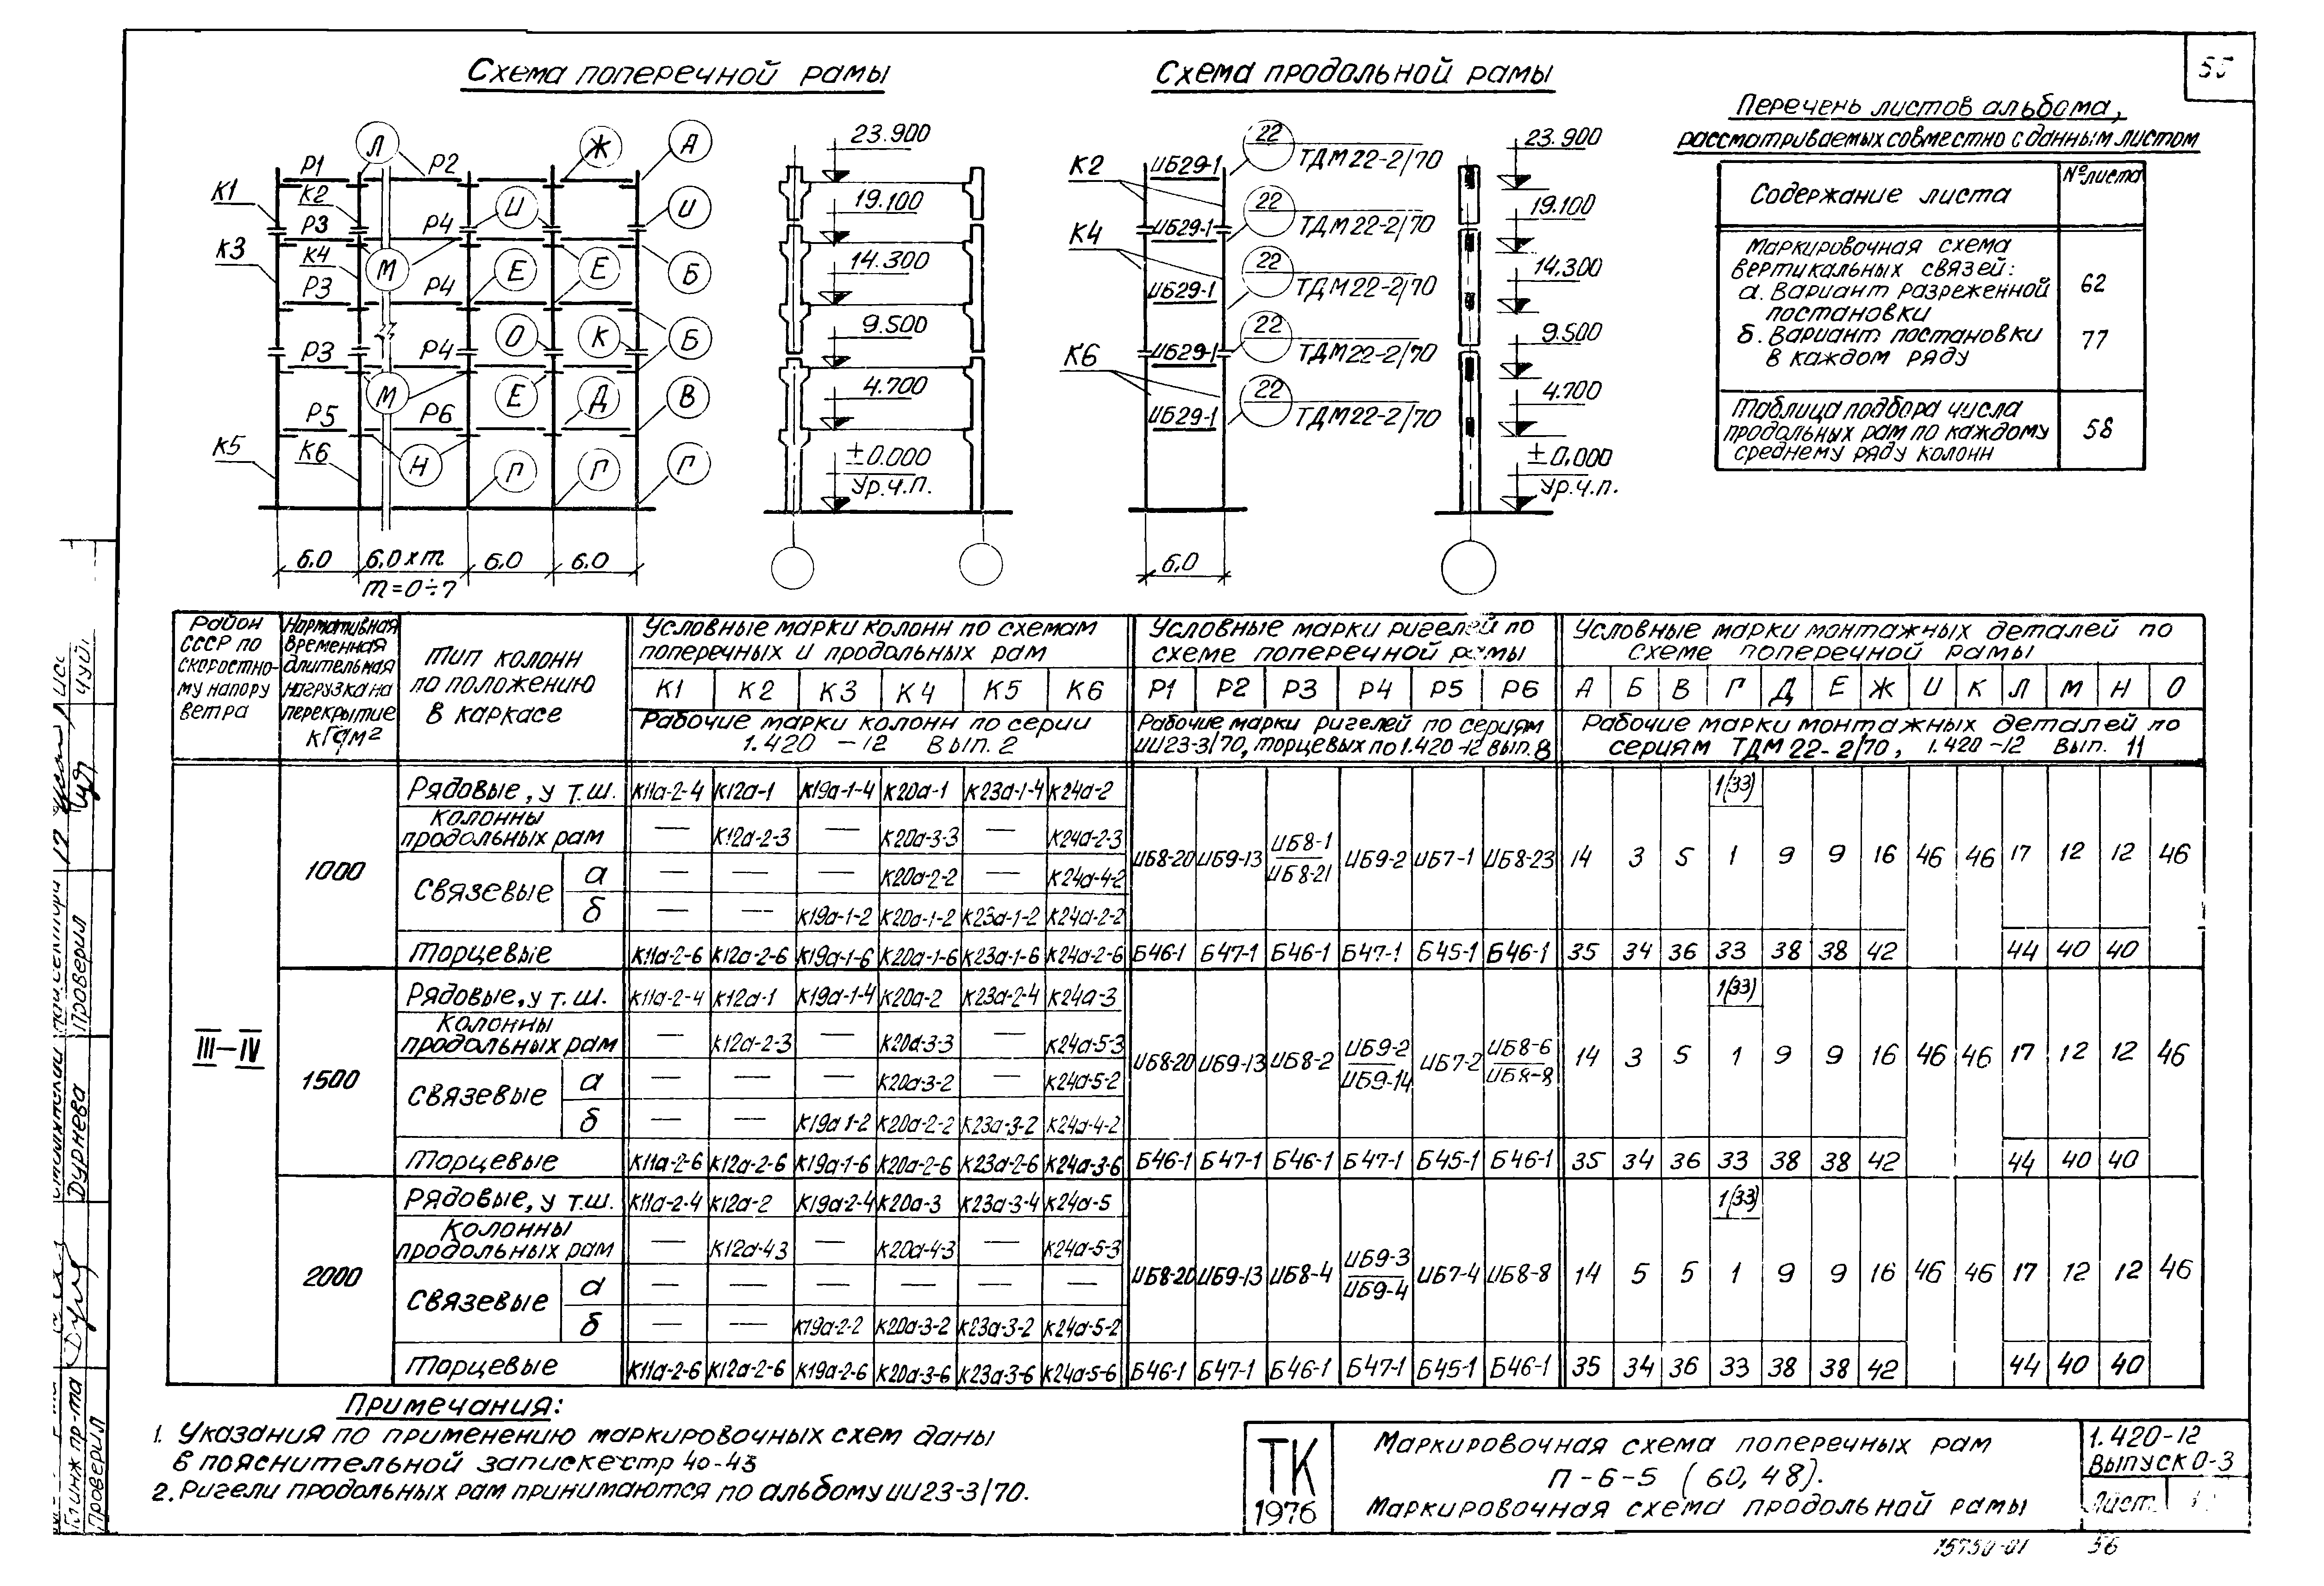 55
Схема поперечной рамы
Л Ж А
Р1 Р2
К1 К2 И И
Р3 Р4
К3 К4 М Е Е Б
Р3 Р4
О К Б
Р3 Р4
М Е Д В
Р5 Р6
К5 К6 Н П Г Г
6,0 6,0хm 6,0 6,0
m=0÷7
23.900
19.100
14.300
9.500
4.700
±0.000
Ур.ч.п.
Схема продольной рамы
К2 ИБ29-1 22 ТДМ22-2/70
К4 ИБ29-1 22 ТДМ22-2/70
ИБ29-1 22 ТДМ22-2/70
К6 ИБ29-1 22 ТДМ22-2/70
ИБ29-1 22 ТДМ22-2/70
6,0
23.900
19.100
14.300
9.500
4.700
±0,000
Ур.ч.п.
Перечень листов альбома,
рассматриваемых совместно с данным листом
Содержание листа №листа
Маркировочная схема
вертикальных связей:
а. Вариант разреженной 62
постановки
б. Вариант постановки 77
в каждом ряду
Таблица подбора числа
продольных рам по каждому 58
среднему ряду колонн
Район СССР по скоростно-му напору ветра
Нормативная временная длительная нагрузка на перекрытие кГс/м²
Тип колонн по положению в каркасе
Условные марки колонн по схемам поперечных и продольных рам
К1 К2 К3 К4 К5 К6
Рабочие марки колонн по серии 1.420-12 Вып.2
Условные марки ригелей по схеме поперечной рамы
Р1 Р2 Р3 Р4 Р5 Р6
Рабочие марки ригелей по сериям ИИ23-3/70, торцевых по 1.420-12 вып.8
Условные марки монтажных деталей по схеме поперечной рамы
А Б В Г Д Е Ж И К Л М Н О
Рабочие марки монтажных деталей по сериям ТДМ 22-2/70, 1.420-12 Вып. 11
III-IV
1000
Рядовые, у т.ш. К11а-2-4 К12а-1 К19а-1-4 К20а-1 К23а-1-4 К24а-2
1(33)
Колонны продольных рам — К12а-2-3 — К20а-3-3 — К24а-2-3
ИБ8-20 ИБ9-13 ИБ8-1 ИБ8-21 ИБ9-2 ИБ7-1 ИБ8-23 14 3 5 1 9 9 16 46 46 17 12 12 46
Связевые а — — — К20а-2-2 — К24а-4-2
б — — К19а-1-2 К20а-1-2 К23а-1-2 К24а-2-2
Торцевые К11а-2-6 К12а-2-6 К19а-1-6 К20а-1-6 К23а-1-6 К24а-2-6 Б46-1 Б47-1 Б46-1 Б47-1 Б45-1 Б46-1 35 34 36 33 38 38 42 44 40 40
1500
Рядовые, у т.ш. К11а-2-4 К12а-1 К19а-1-4 К20а-2 К23а-2-4 К24а-3
1(33)
Колонны продольных рам — К12а-2-3 — К20а-3-3 — К24а-5-3
ИБ8-20 ИБ9-13 ИБ8-2 ИБ9-2 ИБ9-14 ИБ7-2 ИБ8-6 ИБ8-8 14 3 5 1 9 9 16 46 46 17 12 12 46
Связевые а — — — К20а-3-2 — К24а-5-2
б — — К19а 1-2 К20а-2-2 К23а-3-2 К24а-4-2
Торцевые К11а-2-6 К12а-2-6 К19а-1-6 К20а-2-6 К23а-2-6 К24а-3-6 Б46-1 Б47-1 Б46-1 Б47-1 Б45-1 Б46-1 35 34 36 33 38 38 42 44 40 40
2000
Рядовые, у т.ш. К11а-2-4 К12а-2 К19а-2-4 К20а-3 К23а-3-4 К24а-5
1(33)
Колонны продольных рам — К12а-43 — К20а-4-3 — К24а-5-3
ИБ8-20 ИБ9-13 ИБ8-4 ИБ9-3 ИБ9-4 ИБ7-4 ИБ8-8 14 5 5 1 9 9 16 46 46 17 12 12 46
Связевые а — — — — — —
б — — К19а-2-2 К20а-3-2 К23а-3-2 К24а-5-2
Торцевые К11а-2-6 К12а-2-6 К19а-2-6 К20а-3-6 К23а-3-6 К24а-5-6 Б46-1 Б47-1 Б46-1 Б47-1 Б45-1 Б46-1 35 34 36 33 38 38 42 44 40 40
Примечания:
1. Указания по применению маркировочных схем даны
в пояснительной записке стр 40-43
2. Ригели продольных рам принимаются по альбому ИИ23-3/70.
ТК
1976
Маркировочная схема поперечных рам
П-6-5 (60,48).
Маркировочная схема продольной рамы
1.420-12
Выпуск 0-3
Лист
15750-01 56
Проверил
Дурнева
Гл инж пр-та
Проверил